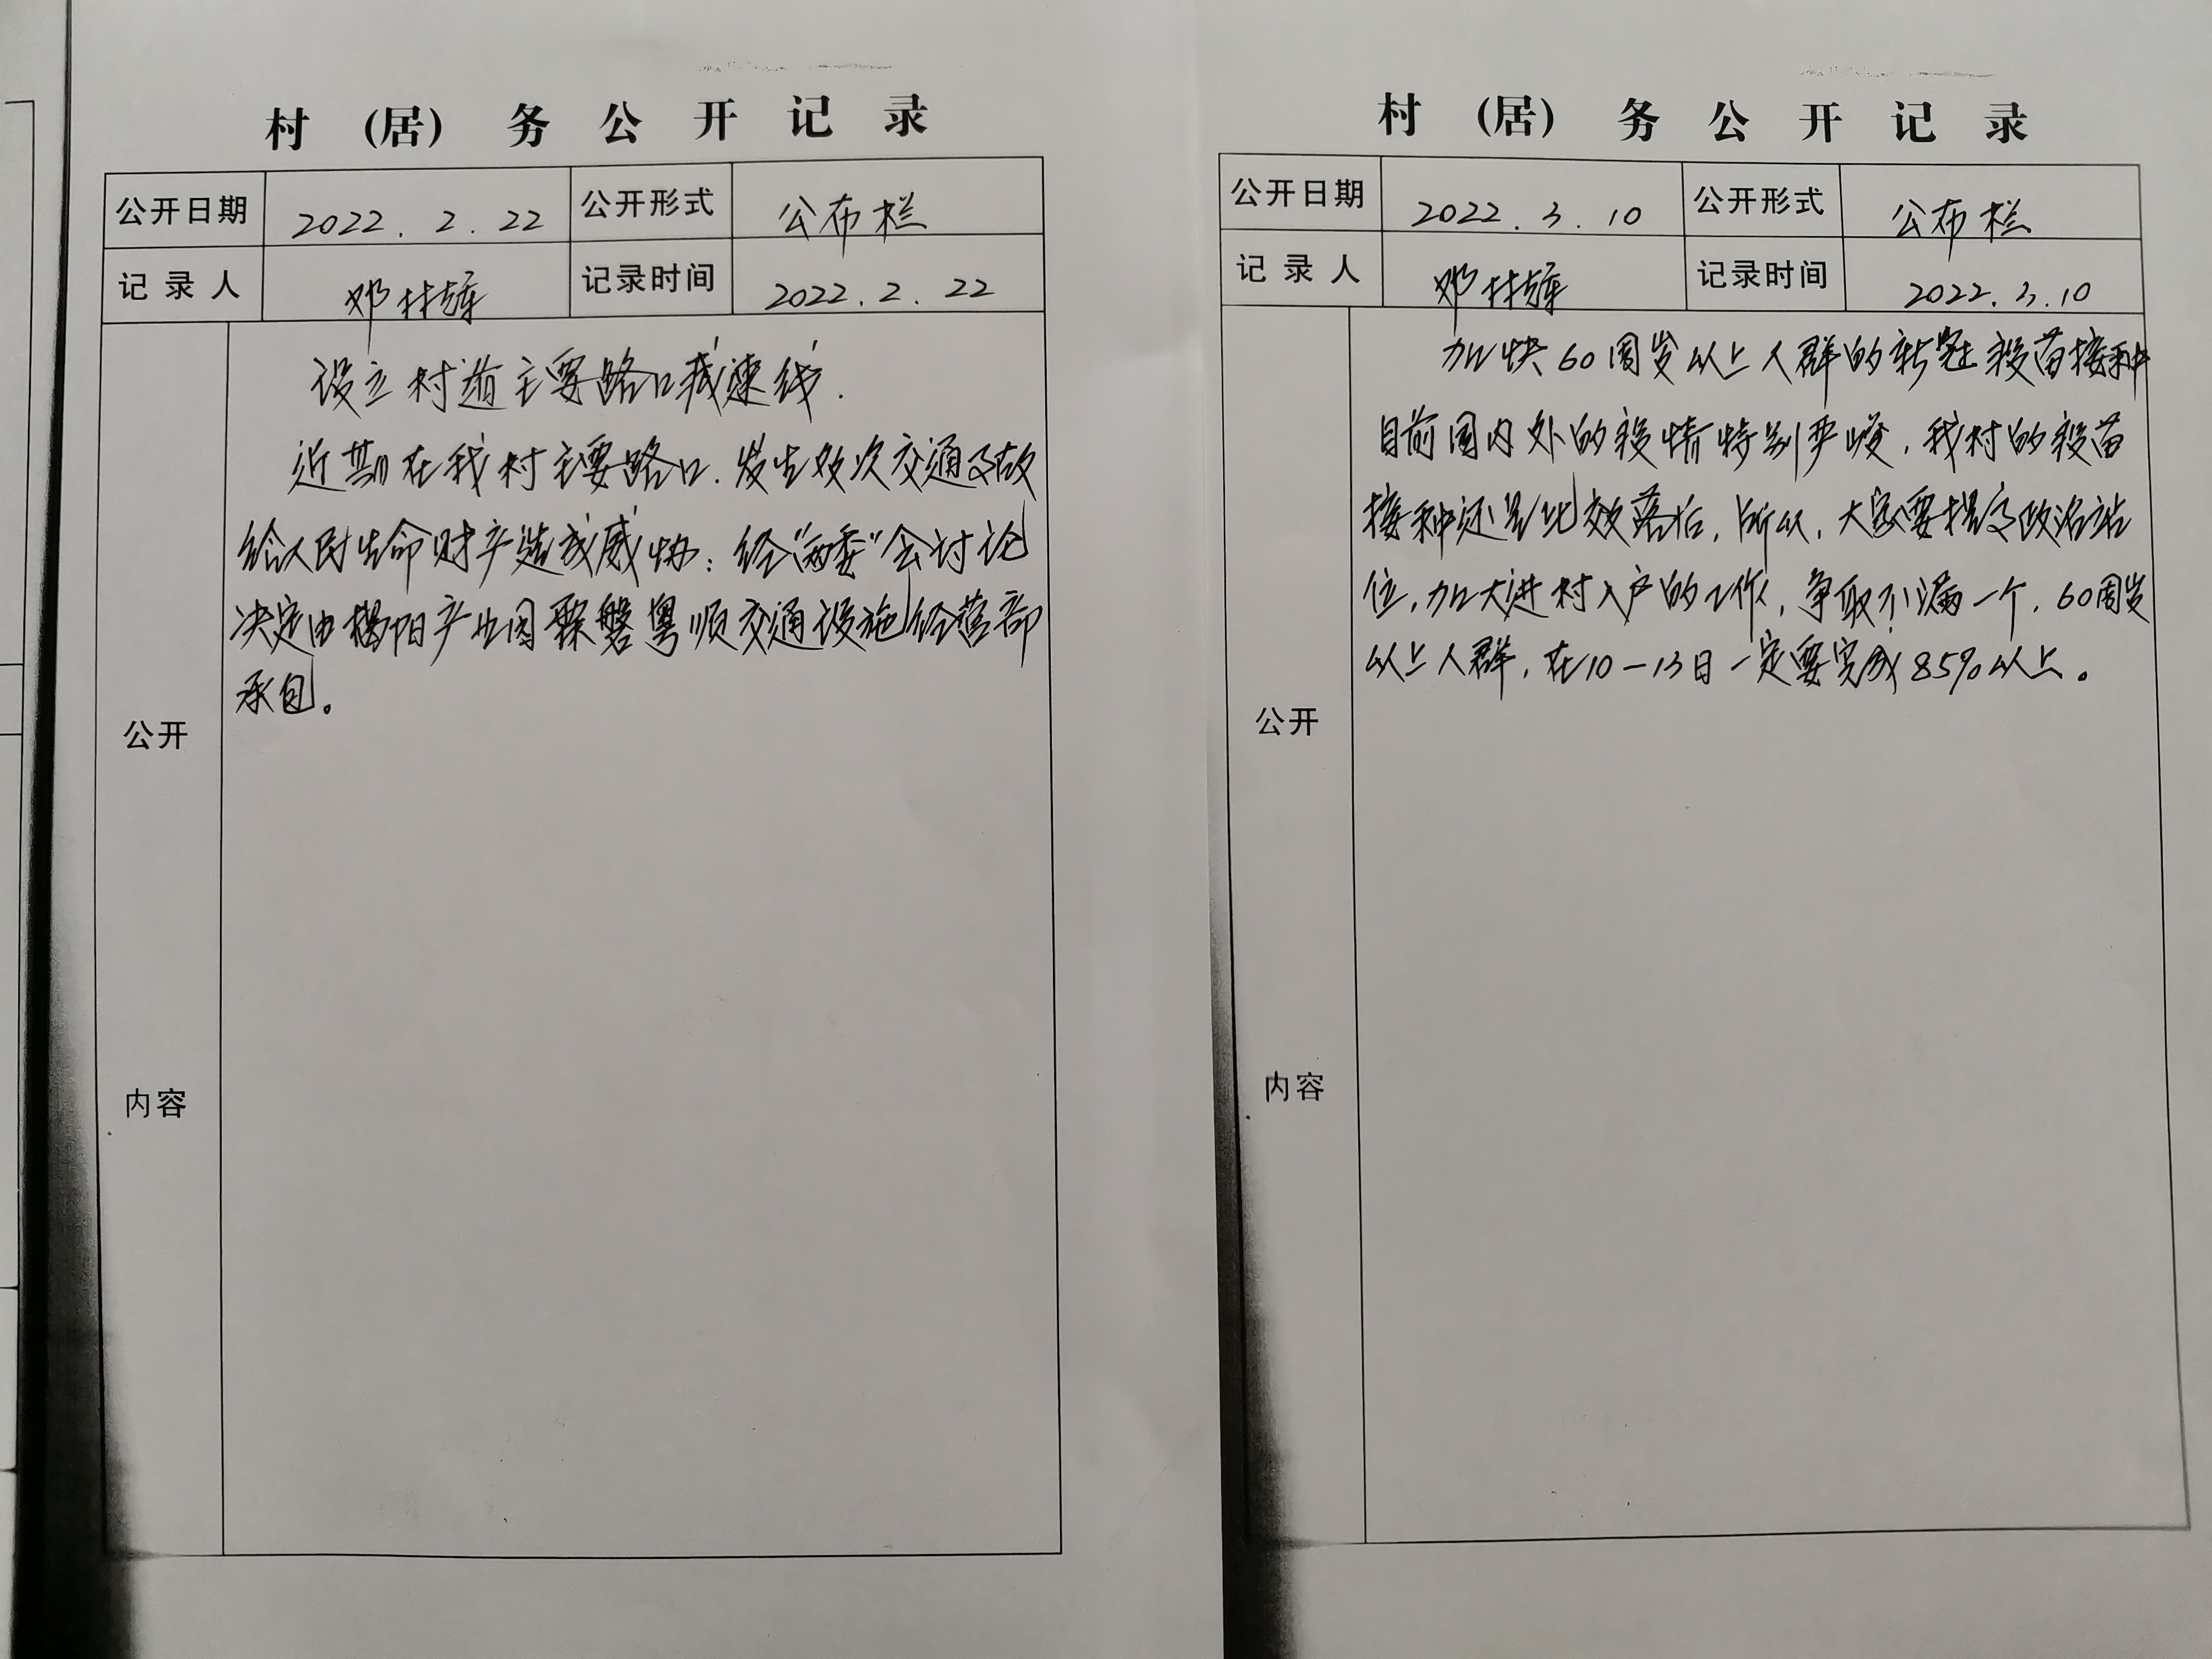 村 (居) 务 公 开 记 录
公开日期 2022.2.22 公开形式 公布栏
记 录 人 邓林 记录时间 2022.2.22
设立村道主要路口减速线.
近期在我村主要路口.发生数次交通事故
给人民生命财产造成威协:经“两委”会讨论
决定由揭阳产业园霖磐粤顺交通设施经营部
承包。
公开
内容
村 (居) 务 公 开 记 录
公开日期 2022.3.10 公开形式 公布栏
记 录 人 邓林 记录时间 2022.3.10
加快60周岁以上人群的新冠疫苗接种
目前国内外的疫情特别严峻,我村的疫苗
接种还是比效落后,所以,大家要提高政治站
位,加大进村入户的工作,争取不漏一个,60周岁
以上人群,在10-13日一定要完成85%以上。
公开
内容